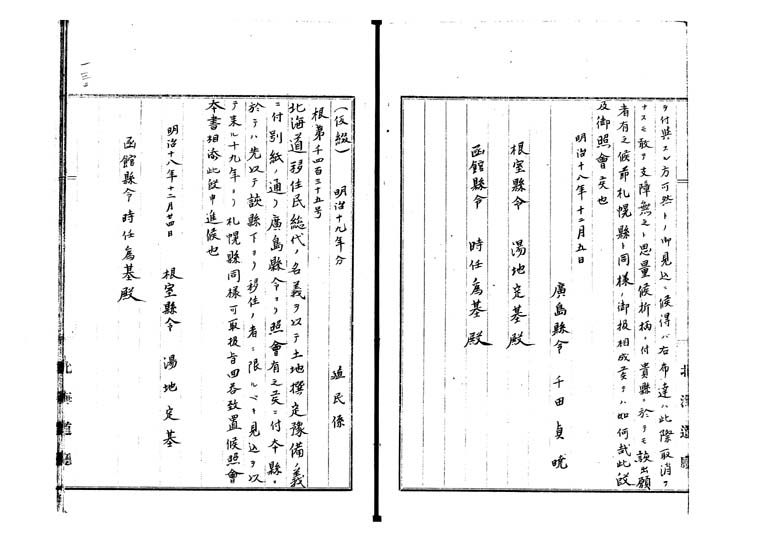 ヲ付與スル方可然トノ御見込ニ候得ハ右布達ハ此際取消ヲ
ナスモ敢テ支障無之ト思量候折柄付貴縣ニ於テモ該出願
者有之候節札幌縣ト同樣ノ御扱相成度ヲハ如何哉此段
及御照會候也
明治十八年十二月五日
廣島縣令 千田貞暁
根室縣令 湯地定基殿
函館縣令 時任為基殿
北海道廳
一三〇
(仮綴) 明治十九年分 殖民係
根第千四百三十五号
北海道移住民総代ノ名義ヲ以テ土地撰定豫備ノ義
ニ付別紙ノ通リ廣島縣令ヨリ照會有之候ニ付本縣ニ
於テハ先以テ該縣下ヨリ移住ノ者ニ限ルベキ見込ヲ以
テ来ル十九年ヨリ札幌縣同樣可取扱旨回答致置候照會
本書相添此段申進候也
明治十八年十二月廿四日 根室縣令 湯地定基
函館縣令 時任為基殿
北海道廳